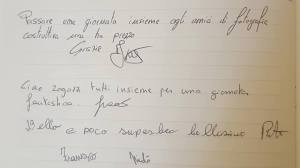 Passare una giornata insieme agli amici di fotografia
costruttiva non ha prezzo
Grazie
Ciao ragazzi tutti insieme per una giornata
fantastica.
Bello e poco superbo bellissimo
Francesco